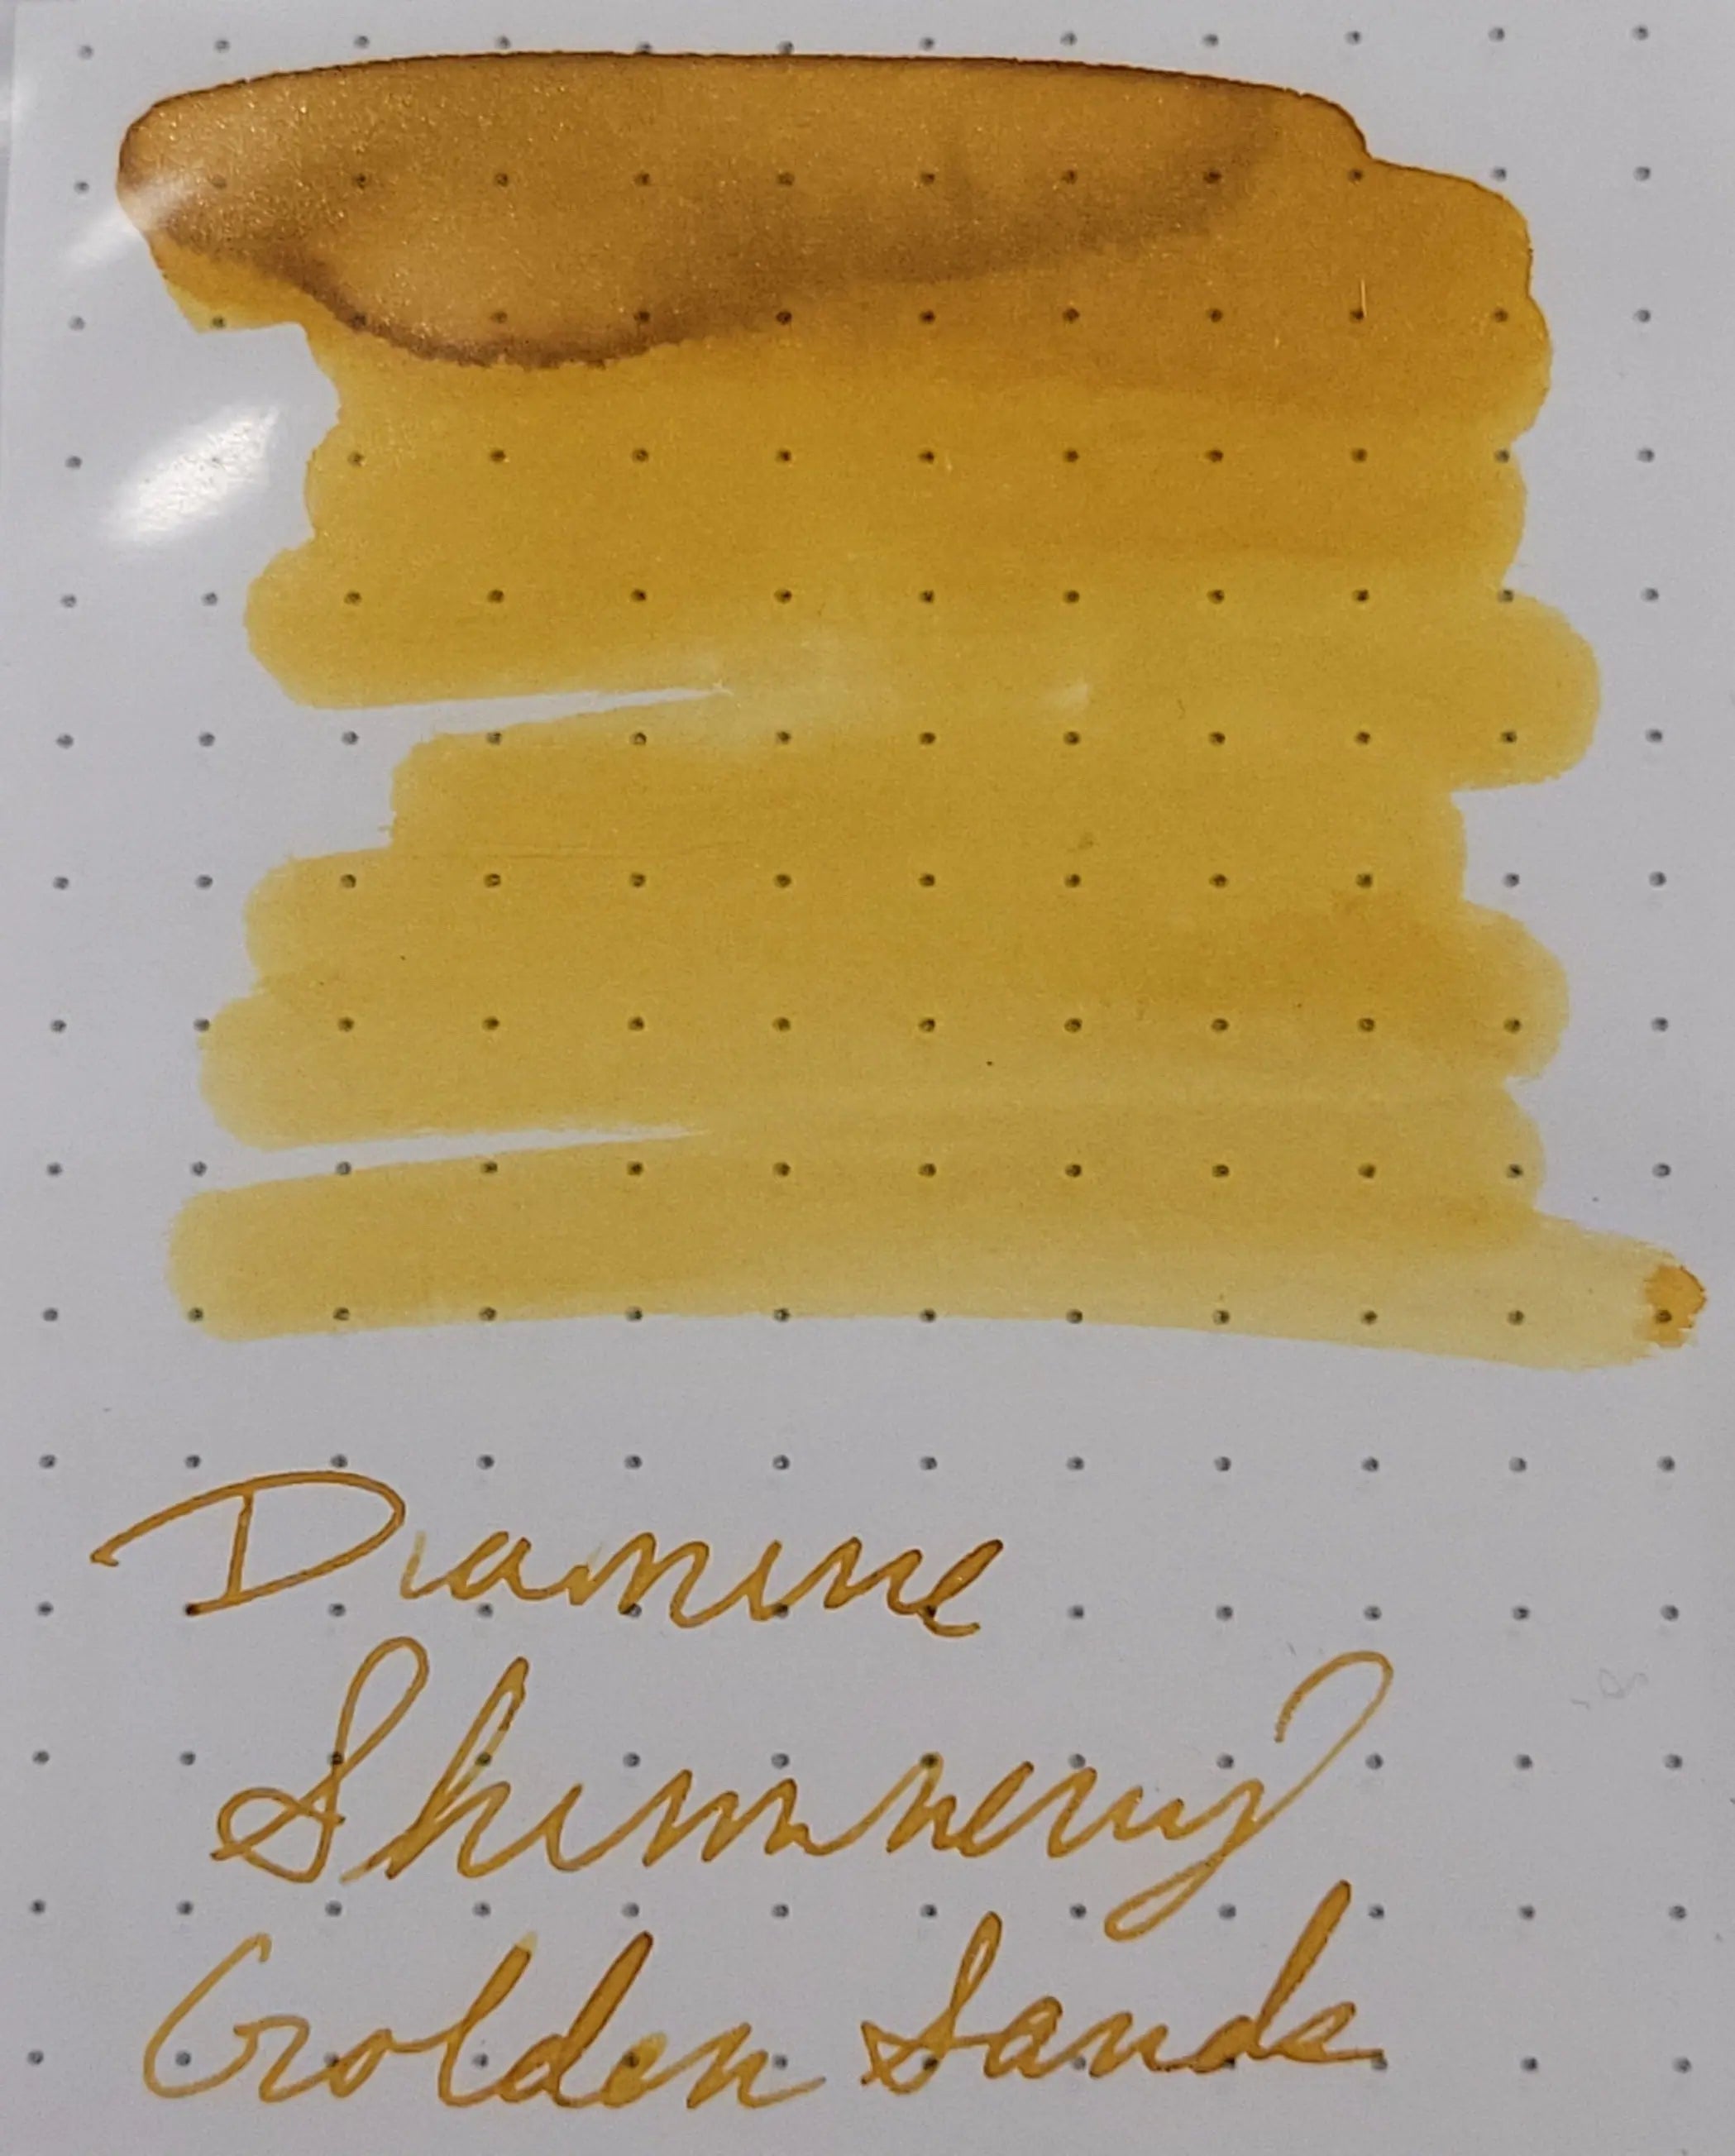 Diamine
Shimmery
Golden Sands